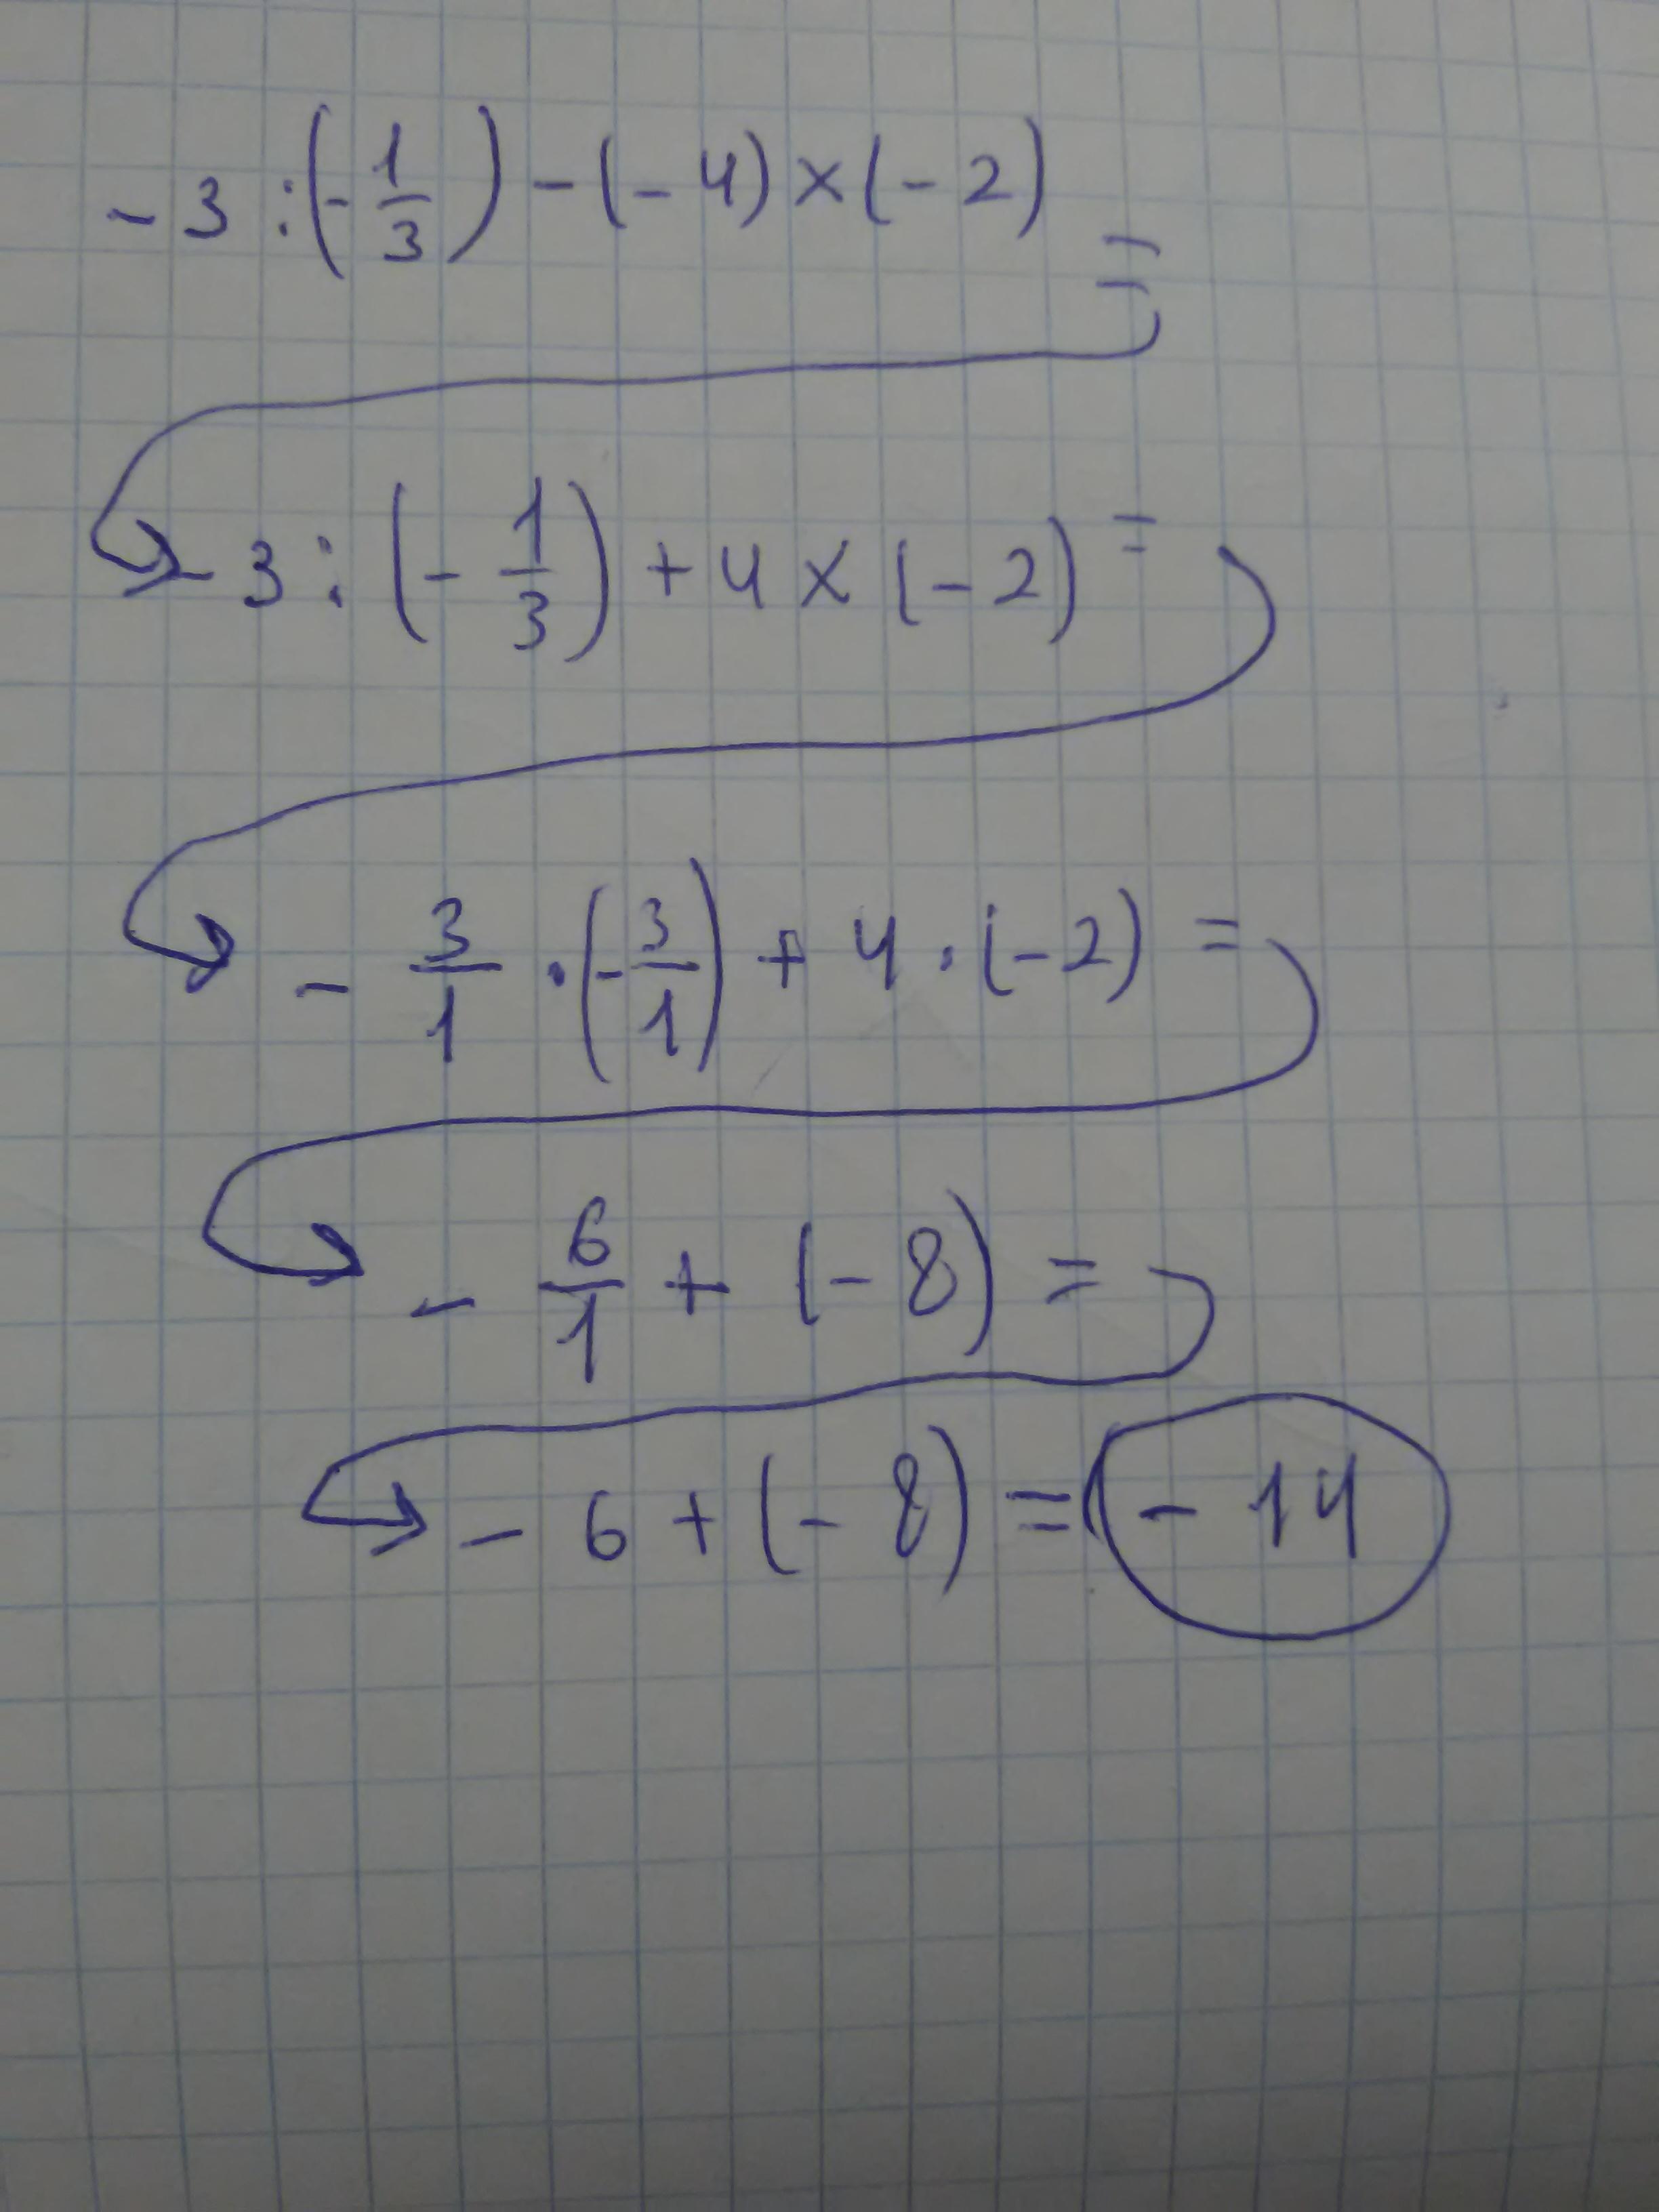 - 3 : (- 1/3) - (- 4) × (- 2) =
- 3 : (- 1/3) + 4 × (- 2) =
- 3/1 · (- 3/1) + 4 · (- 2) =
- 6/1 + (- 8) =
- 6 + (- 8) = - 14